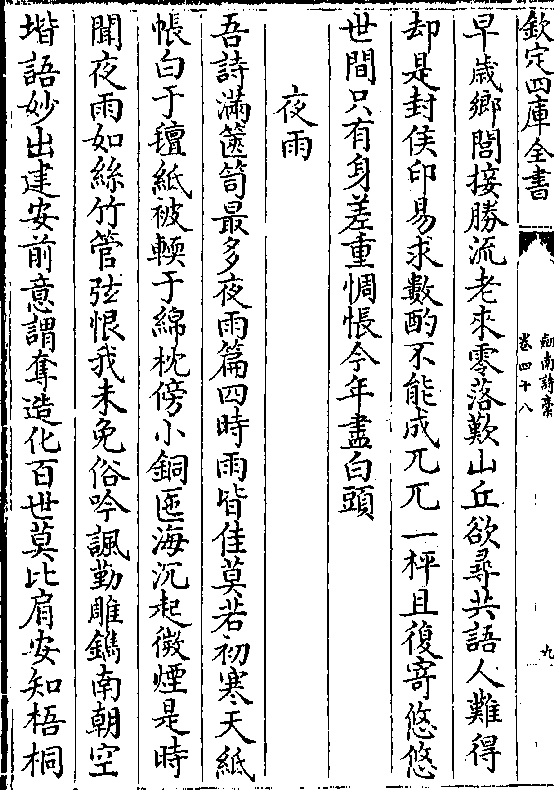 欽定四庫全書
劒南詩稾
卷四十八
九
早歲鄉閭接勝流老來零落歎山丘欲尋共語人難得
却是封侯印易求數酌不能成兀兀一枰且復寄悠悠
世間只有身差重惆悵今年盡白頭
夜雨
吾詩滿篋笥最多夜雨篇四時雨皆佳莫若初寒天紙
帳白于氊紙被輭于綿枕傍小銅匜海沉起微煙是時
聞夜雨如絲竹管弦恨我未免俗吟諷勤雕鐫南朝空
堦語妙出建安前意謂奪造化百世莫比肩安知梧桐